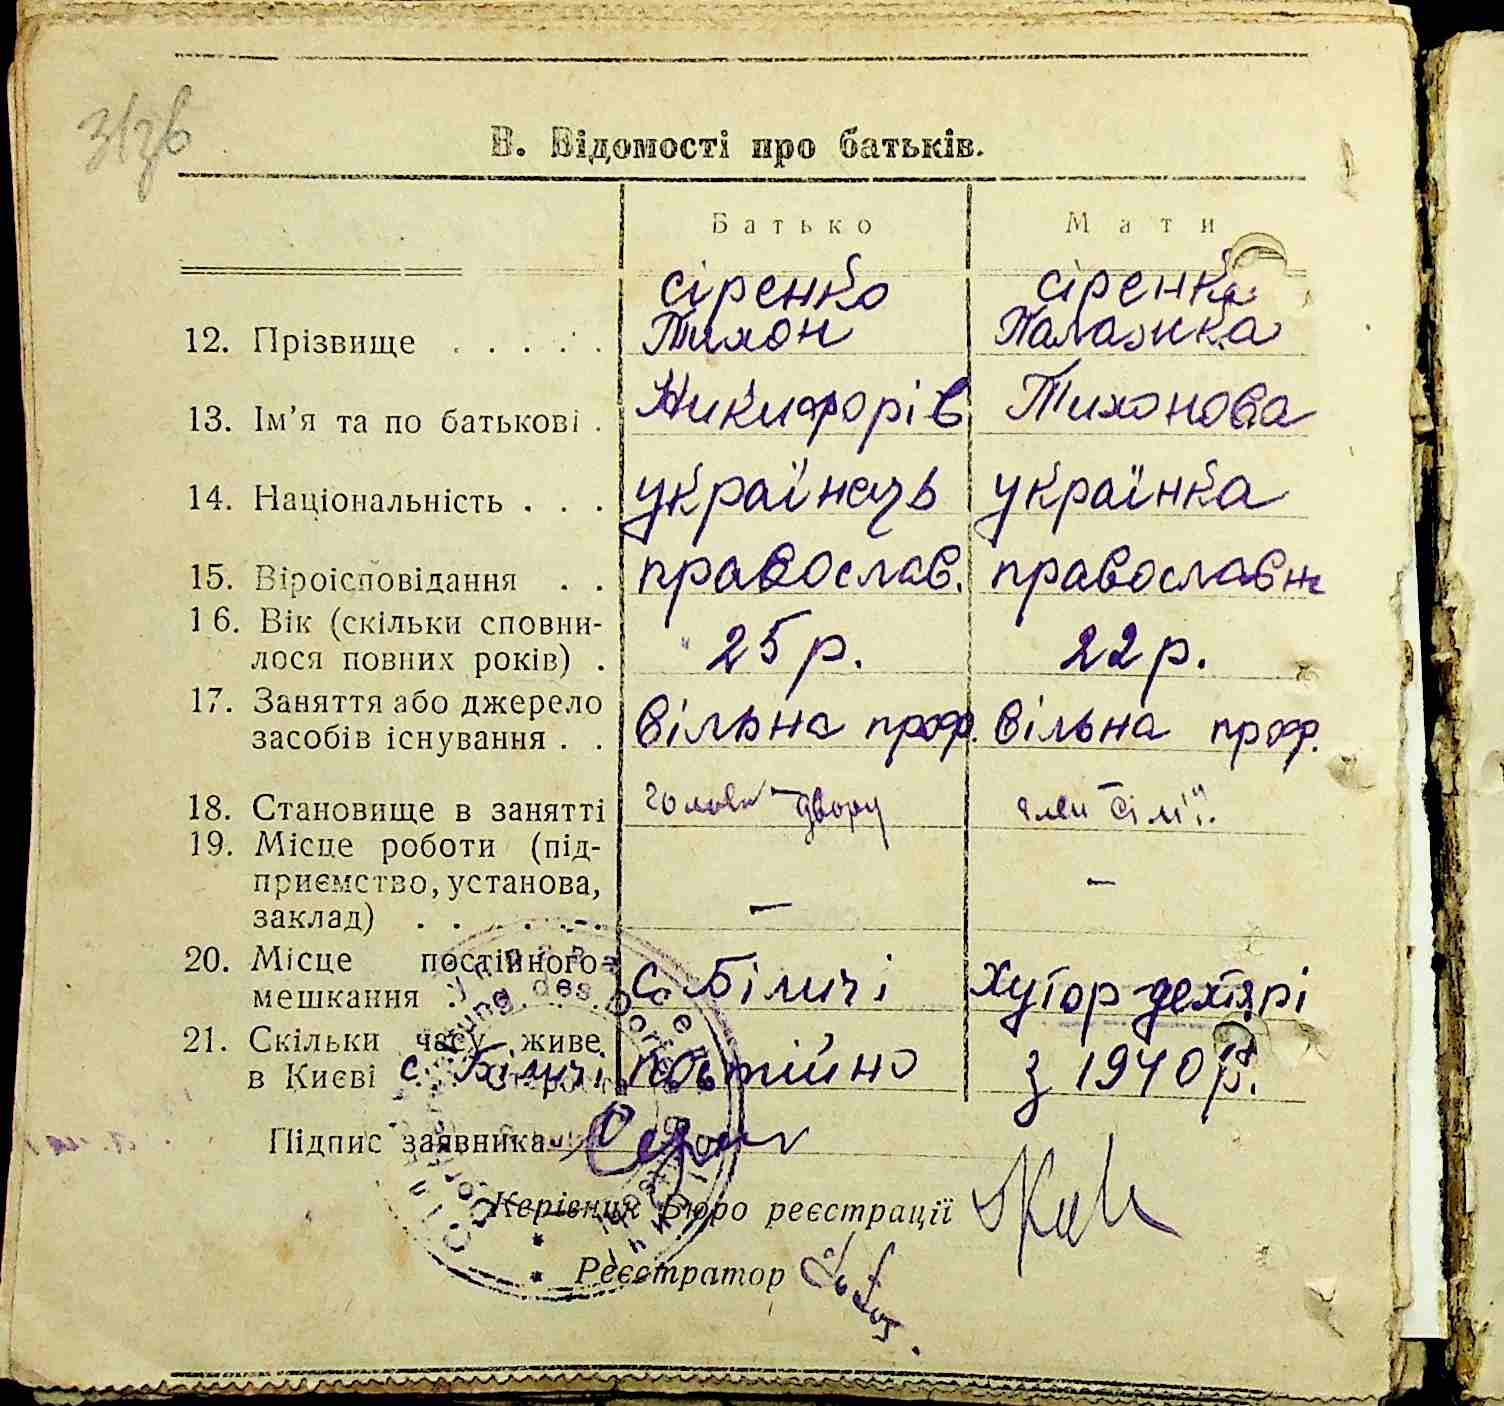 В. Відомості про батьків.
Батько Мати
сіренко сіренко
12. Прізвище . . . . . Тихон Палажка
13. Ім'я та по батькові . Никифорів Тихонова
14. Національність . . . українець українка
15. Віроісповідання . . православ. православн
16. Вік (скільки сповни-
лося повних років) . 25 р. 22 р.
17. Заняття або джерело
засобів існування . . вільна проф. вільна проф.
18. Становище в занятті голова двору член сім'ї
19. Місце роботи (під-
приємство, установа,
заклад) . . . . . . — —
20. Місце постійного
мешкання . . . . . с. Біличі хутор дехтярі
21. Скільки часу живе
в Києві с. Біличі постійно з 1940 р.
Підпис заявника
Керівник Бюро реєстрації
Реєстратор